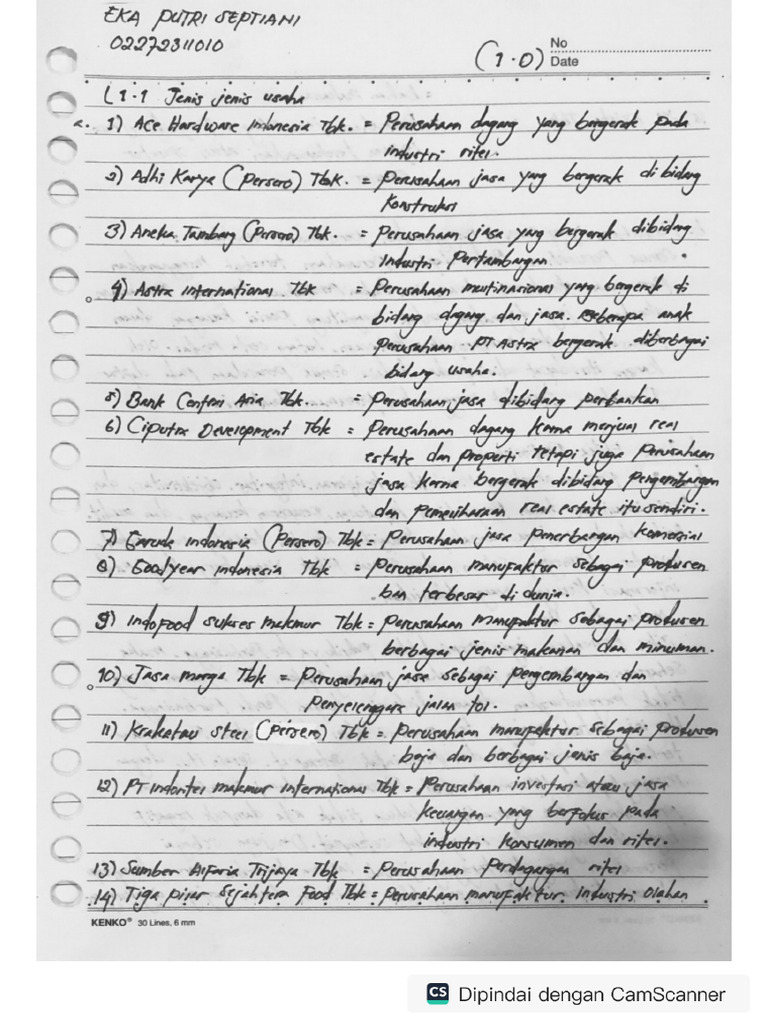 EKA PUTRI SEPTIANI
02272311010
(1.0) No
Date
L1.1 Jenis jenis usaha
a. 1) Ace Hardware Indonesia Tbk. = Perusahaan dagang yang bergerak pada
industri ritel.
2) Adhi Karya (Persero) Tbk. = Perusahaan jasa yang bergerak di bidang
Konstruksi
3) Aneka Tambang (Persero) Tbk. = Perusahaan jasa yang bergerak dibidang
industri Pertambangan
4) Astra International Tbk = Perusahaan multinasional yang bergerak di
bidang dagang dan jasa. Beberapa anak
Perusahaan PT Astra bergerak diberbagai
bidang usaha.
5) Bank Central Asia Tbk. = Perusahaan jasa dibidang perbankan
6) Ciputra Development Tbk = Perusahaan dagang karna menjual real
estate dan properti tetapi juga Perusahaan
jasa karna bergerak dibidang pengembangan
dan pemeliharaan real estate itu sendiri.
7) Garuda indonesia (Persero) Tbk = Perusahaan jasa penerbangan komersial
8) Goodyear indonesia Tbk = Perusahaan manufaktur sebagai produsen
ban terbesar di dunia.
9) Indofood sukses makmur Tbk = Perusahaan manufaktur sebagai produsen
berbagai jenis makanan dan minuman.
10) Jasa marga Tbk = Perusahaan jasa sebagai pengembangan dan
Penyelenggara jalan tol.
11) Krakatau steel (Persero) Tbk = Perusahaan manufaktur sebagai produsen
baja dan berbagai jenis baja.
12) PT Indoritel makmur internasional Tbk = Perusahaan investasi atau jasa
keuangan yang berfokus pada
industri konsumen dan ritel.
13) Sumber Alfaria Trijaya Tbk = Perusahaan Perdagangan ritel
14) Tiga pilar sejahtera Food Tbk = Perusahaan manufaktur Industri Olahan.
KENKO® 30 Lines, 6 mm
CS Dipindai dengan CamScanner